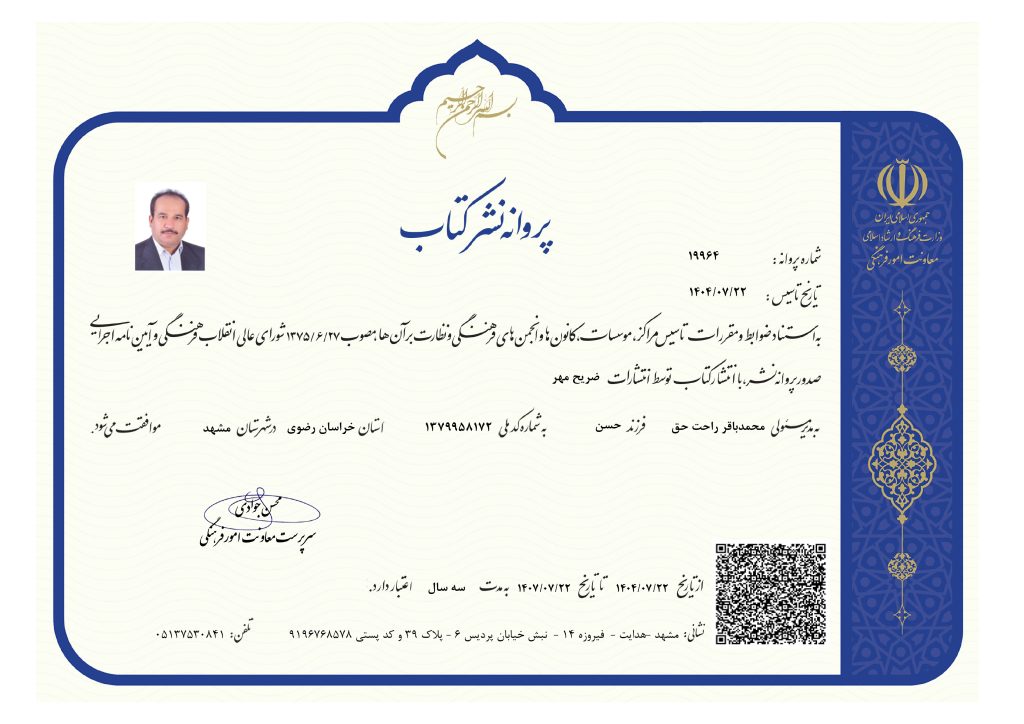 بسم الله الرحمن الرحیم
جمهوری اسلامی ایران
وزارت فرهنگ و ارشاد اسلامی
معاونت امور فرهنگی
پروانه نشر کتاب
شماره پروانه : ۱۹۹۶۴
تاریخ تاسیس : ۱۴۰۴/۰۷/۲۲
به استناد ضوابط و مقررات تاسیس مراکز، موسسات، کانون ها و انجمن های فرهنگی و نظارت بر آن ها مصوب ۱۳۷۵/۶/۲۷ شورای عالی انقلاب فرهنگی و آیین نامه اجرایی
صدور پروانه نشر، با انتشار کتاب توسط انتشارات ضریح مهر
به مدیر مسئولی محمدباقر راحت حق فرزند حسن به شماره کد ملی ۱۳۷۹۹۵۸۱۷۲ استان خراسان رضوی در شهرستان مشهد موافقت می شود.
محسن جوادی
سرپرست معاونت امور فرهنگی
از تاریخ ۱۴۰۴/۰۷/۲۲ تا تاریخ ۱۴۰۷/۰۷/۲۲ به مدت سه سال اعتبار دارد.
نشانی: مشهد -هدایت - فیروزه ۱۴ - نبش خیابان پردیس ۶ - پلاک ۳۹ و کد پستی ۹۱۹۶۷۶۸۵۷۸ تلفن: ۰۵۱۳۷۵۳۰۸۴۱